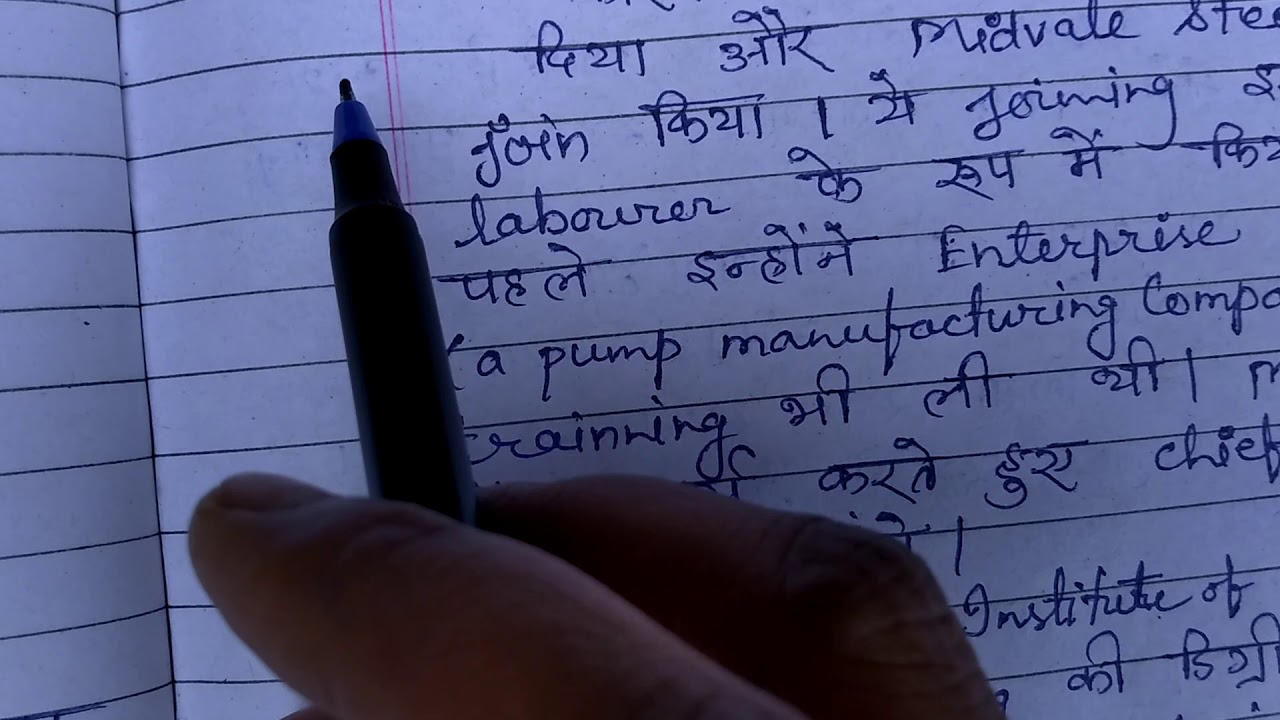 दिया और Midvale
Join किया । ये joining
labourer के रूप में
पहले इन्होंने Enterprise
(a pump manufacturing
trainning भी ली थी।
करते हुए chief
Institute of
की डिग्री